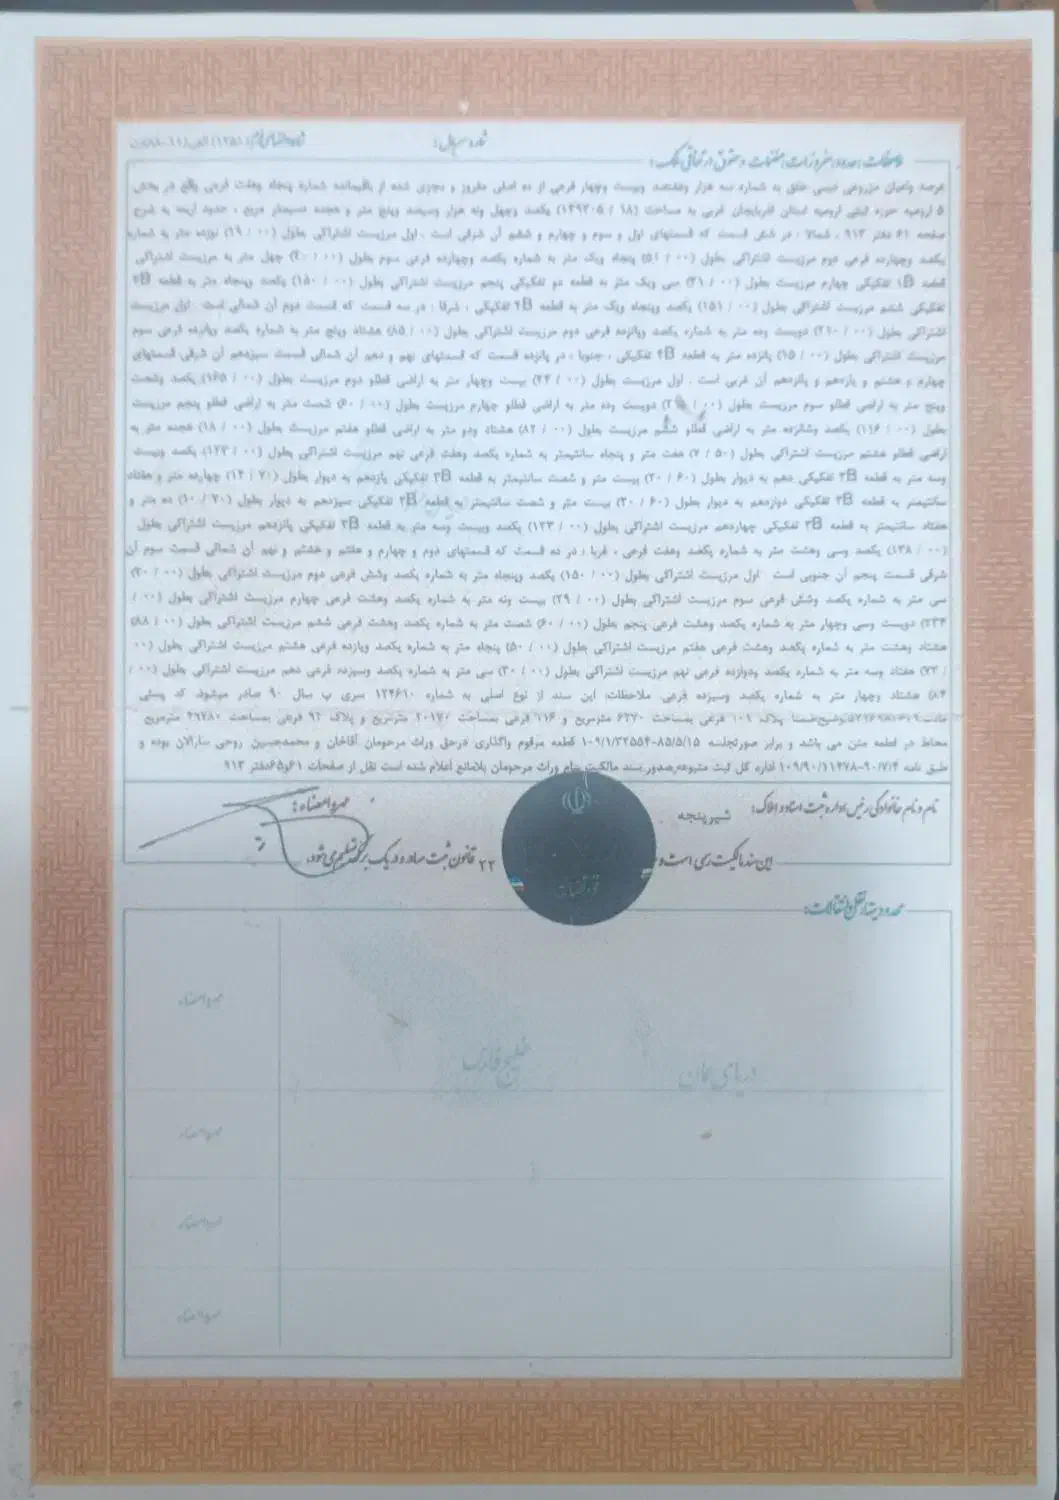 شماره سریال:
ملاحظات، حدود، مفروزات، منضمات و حقوق ارتفاقی ملک:
عرصه واعیان مزروعی دیمی خلق به شماره سه هزار وهفتصد وبیست وچهار فرعی از ده اصلی مفروز و مجزی شده از باقیمانده شماره پنجاه وهفت فرعی واقع در بخش
۵ ارومیه حوزه ثبتی ارومیه استان آذربایجان غربی به مساحت (۱۸ / ۱۴۹۳۰۵) یکصد وچهل ونه هزار وسیصد وپنج متر و هجده دسیمتر مربع ، حدود اربعه به شرح
صفحه ۶۱ دفتر ۹۱۳ ، شمالا : در شش قسمت که قسمتهای اول و سوم و چهارم و ششم آن شرقی است . اول مرزیست اشتراکی بطول (۰۰ / ۱۹) نوزده متر به شماره
یکصد وچهارده فرعی دوم مرزیست اشتراکی بطول (۰۰ / ۵۱) پنجاه ویک متر به شماره یکصد وچهارده فرعی سوم بطول (۰۰ / ۴۰) چهل متر به مرزیست اشتراکی
قطعه B۱ تفکیکی چهارم مرزیست بطول (۰۰ / ۳۱) سی ویک متر به قطعه دو تفکیکی پنجم مرزیست اشتراکی بطول (۰۰ / ۱۵۰) یکصد وپنجاه متر به قطعه B۴
تفکیکی ششم مرزیست اشتراکی بطول (۰۰ / ۱۵۱) یکصد وپنجاه ویک متر به قطعه B۴ تفکیکی ، شرقا : در سه قسمت که قسمت دوم آن شمالی است . اول مرزیست
اشتراکی بطول (۰۰ / ۲۱۰) دویست وده متر به شماره یکصد وپانزده فرعی دوم مرزیست اشتراکی بطول (۰۰ / ۸۵) هشتاد وپنج متر به شماره یکصد وپانزده فرعی سوم
مرزیست اشتراکی بطول (۰۰ / ۱۵) پانزده متر به قطعه B۴ تفکیکی ، جنوبا : در پانزده قسمت که قسمتهای نهم و دهم آن شمالی قسمت سیزدهم آن شرقی قسمتهای
چهارم و هشتم و یازدهم و پانزدهم آن غربی است . اول مرزیست بطول (۰۰ / ۲۴) بیست وچهار متر به اراضی قطلو دوم مرزیست بطول (۰۰ / ۱۶۵) یکصد وشصت
وپنج متر به اراضی قطلو سوم مرزیست بطول (۰۰ / دویست وده متر به اراضی قطلو چهارم مرزیست بطول (۰۰ / ۶۰) شصت متر به اراضی قطلو پنجم مرزیست
بطول (۰۰ / ۱۱۶) یکصد وشانزده متر به اراضی قطلو ششم مرزیست بطول (۰۰ / ۸۲) هشتاد ودو متر به اراضی قطلو هفتم مرزیست بطول (۰۰ / ۱۸) هجده متر به
اراضی قطلو هشتم مرزیست اشتراکی بطول (۵۰ / ۷) هفت متر و پنجاه سانتیمتر به شماره یکصد وهفت فرعی نهم مرزیست اشتراکی بطول (۰۰ / ۱۲۳) یکصد وبیست
وسه متر به قطعه B۳ تفکیکی دهم به دیوار بطول (۶۰ / ۲۰) بیست متر و شصت سانتیمتر به قطعه B۳ تفکیکی یازدهم به دیوار بطول (۷۰ / ۱۴) چهارده متر و هفتاد
سانتیمتر به قطعه B۳ تفکیکی دوازدهم به دیوار بطول (۶۰ / ۲۰) بیست متر و شصت سانتیمتر به قطعه B۳ تفکیکی سیزدهم به دیوار بطول (۷۰ / ۱۰) ده متر و
هفتاد سانتیمتر به قطعه B۳ تفکیکی چهاردهم مرزیست اشتراکی بطول (۰۰ / ۱۲۳) یکصد وبیست وسه متر به قطعه B۳ تفکیکی پانزدهم مرزیست اشتراکی بطول
(۰۰ / ۱۳۸) یکصد وسی وهشت متر به شماره یکصد وهفت فرعی ، غربا : در ده قسمت که قسمتهای دوم و چهارم و هفتم و هشتم و نهم آن شمالی قسمت سوم آن
شرقی قسمت پنجم آن جنوبی است . اول مرزیست اشتراکی بطول (۰۰ / ۱۵۰) یکصد وپنجاه متر به شماره یکصد وشش فرعی دوم مرزیست اشتراکی بطول (۰۰ / ۳۰)
سی متر به شماره یکصد وشش فرعی سوم مرزیست اشتراکی بطول (۰۰ / ۲۹) بیست ونه متر به شماره یکصد وهشت فرعی چهارم مرزیست اشتراکی بطول (۰۰ /
۲۳۴) دویست وسی وچهار متر به شماره یکصد وهشت فرعی پنجم بطول (۰۰ / ۶۰) شصت متر به شماره یکصد وهشت فرعی ششم مرزیست اشتراکی بطول (۰۰ / ۸۸)
هشتاد وهشت متر به شماره یکصد وهشت فرعی هفتم مرزیست اشتراکی بطول (۰۰ / ۵۰) پنجاه متر به شماره یکصد ویازده فرعی هشتم مرزیست اشتراکی بطول (۰۰
/ ۷۳) هفتاد وسه متر به شماره یکصد ودوازده فرعی نهم مرزیست اشتراکی بطول (۰۰ / ۳۰) سی متر به شماره یکصد وسیزده فرعی دهم مرزیست اشتراکی بطول (۰۰ /
۸۴) هشتاد وچهار متر به شماره یکصد وسیزده فرعی. ملاحظات: این سند از نوع اصلی به شماره ۱۲۴۶۱۰ سری ب سال ۹۰ صادر میشود، کد پستی
توضیح:ضمنا پلاک ۱۰۹ فرعی بمساحت ۶۳۷۰ مترمربع و ۱۱۶ فرعی بمساحت ۲۰۱۷۰ مترمربع و پلاک ۹۲ فرعی بمساحت ۲۹۷۸۰ مترمربع
محاط در قطعه متن می باشد و برابر صورتجلسه ۸۵/۵/۱۵-۱۰۹/۱/۳۲۵۵۴ قطعه مرقوم واگذاری درحق وراث مرحومان آقاخان و محمدحسین روحی سارالان بوده و
طبق نامه ۹۰/۷/۴-۱۰۹/۹۰/۱۱۴۷۸ اداره کل ثبت متبوعه,صدور سند مالکیت بنام وراث مرحومان بلامانع اعلام شده است نقل از صفحات ۶۱و۶۵دفتر ۹۱۳
نام و نام خانوادگی رئیس اداره ثبت اسناد و املاک: شیرپنجه مهر و امضاء:
این سند مالکیت رسمی است و ۲۲ قانون ثبت صادر و در یک برگ تسلیم می‌شود.
محدودیت، نقل و انتقالات:
مهر و امضاء
خلیج فارس
دریای عمان
مهر و امضاء
مهر و امضاء
مهر و امضاء